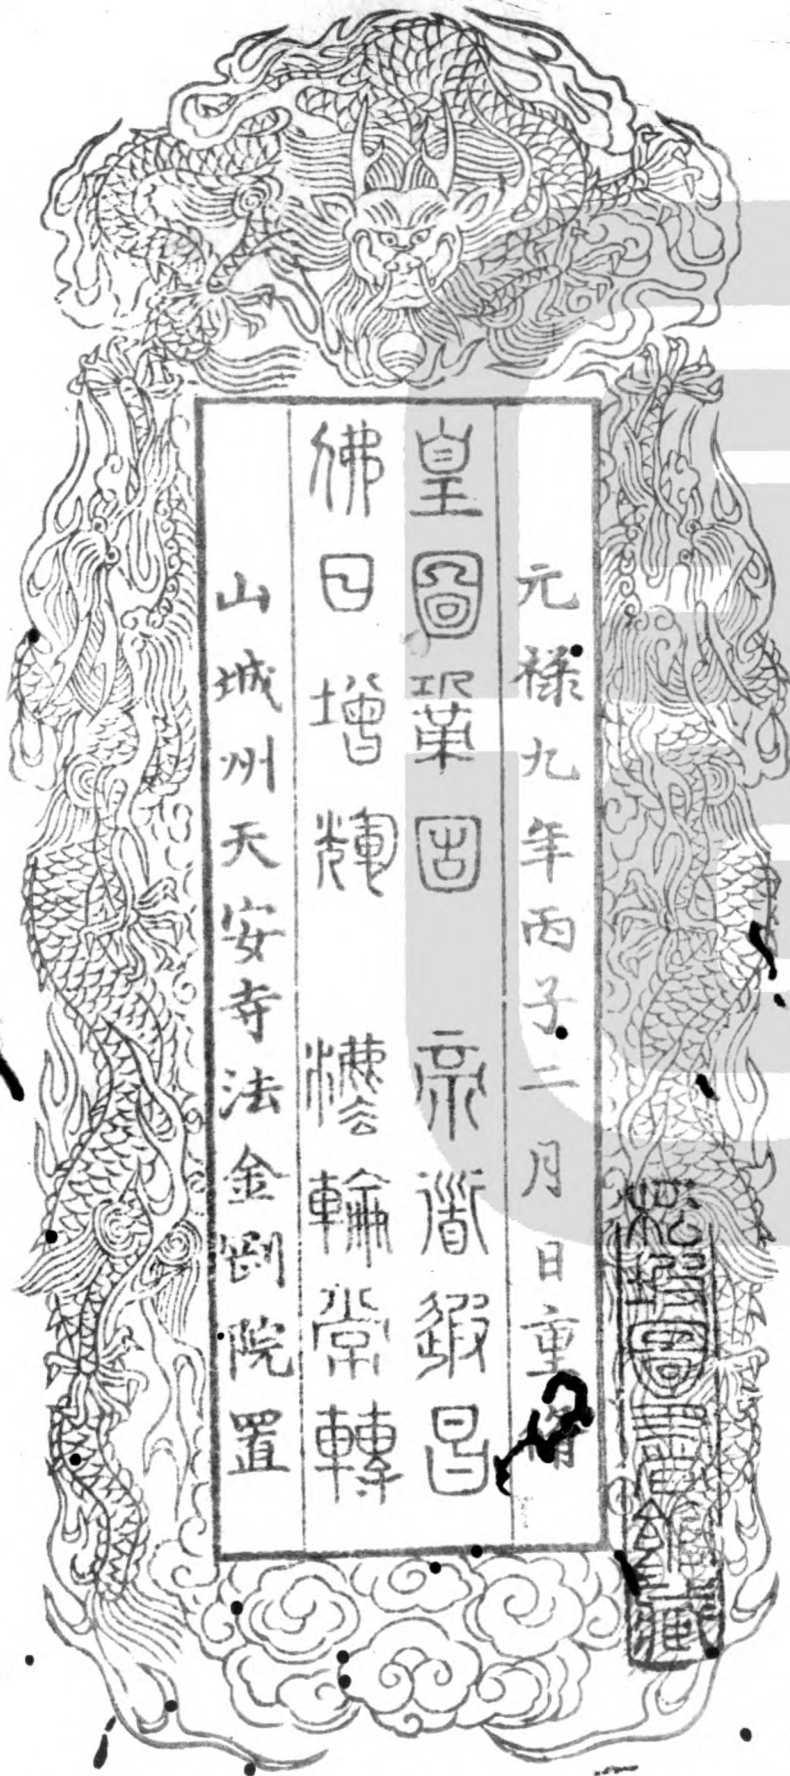 元禄九年丙子二月日重
皇圖鞏固 帝道遐昌
佛日增輝 法輪常轉
山城州天安寺法金剛院置